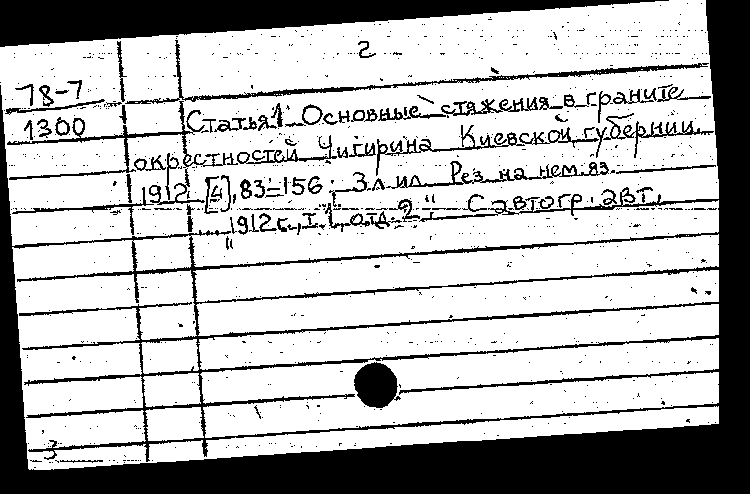 2
78-7
1300
Статья 1 Основные стяжения в граните
окрестностей Чигирина Киевской губернии.
1912 [4], 83-156; 3 л ил Рез на нем. яз.
... „1912 г., т. 1, отд. 2" С автогр. авт.
3